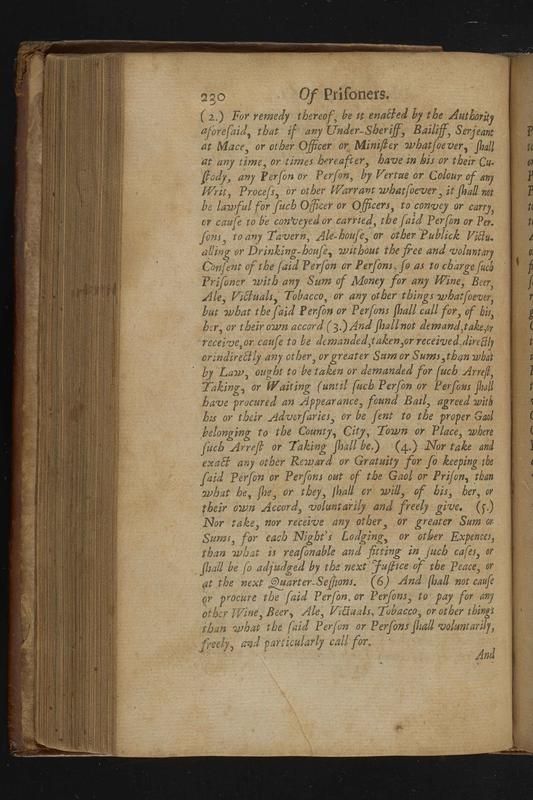 230 Of Priſoners.
(2.) For remedy thereof, be it enacted by the Authority
aforeſaid, that if any Under-Sheriff, Bailiff, Serjeant
at Mace, or other Officer or Miniſter whatſoever, ſhall
at any time, or times hereafter, have in his or their Cu-
ſtody, any Perſon or Perſon, by Vertue or Colour of any
Writ, Proceſs, or other Warrant whatſoever, it ſhall not
be lawful for ſuch Officer or Officers, to convey or carry,
or cauſe to be conveyed or carried, the ſaid Perſon or Per-
ſons, to any Tavern, Ale-houſe, or other Publick Victu-
alling or Drinking-houſe, without the free and voluntary
Conſent of the ſaid Perſon or Perſons, ſo as to charge ſuch
Priſoner with any Sum of Money for any Wine, Beer,
Ale, Victuals, Tobacco, or any other things whatſoever,
but what the ſaid Perſon or Perſons ſhall call for, of his,
her, or their own accord (3.) And ſhall not demand, take, or
receive, or cauſe to be demanded, taken, or received, directly
or indirectly any other, or greater Sum or Sums, than what
by Law, ought to be taken or demanded for ſuch Arreſt,
Taking, or Waiting (until ſuch Perſon or Perſons ſhall
have procured an Appearance, found Bail, agreed with
his or their Adverſaries, or be ſent to the proper Gaol
belonging to the County, City, Town or Place, where
ſuch Arreſt or Taking ſhall be.) (4.) Nor take and
exact any other Reward or Gratuity for ſo keeping the
ſaid Perſon or Perſons out of the Gaol or Priſon, than
what he, ſhe, or they, ſhall or will, of his, her, or
their own Accord, voluntarily and freely give. (5.)
Nor take, nor receive any other, or greater Sum or
Sums, for each Night's Lodging, or other Expences,
than what is reaſonable and fitting in ſuch caſes, or
ſhall be ſo adjudged by the next Juſtice of the Peace, or
at the next Quarter-Seſſions. (6) And ſhall not cauſe
or procure the ſaid Perſon, or Perſons, to pay for any
other Wine, Beer, Ale, Victuals, Tobacco, or other things
than what the ſaid Perſon or Perſons ſhall voluntarily,
freely, and particularly call for.
And